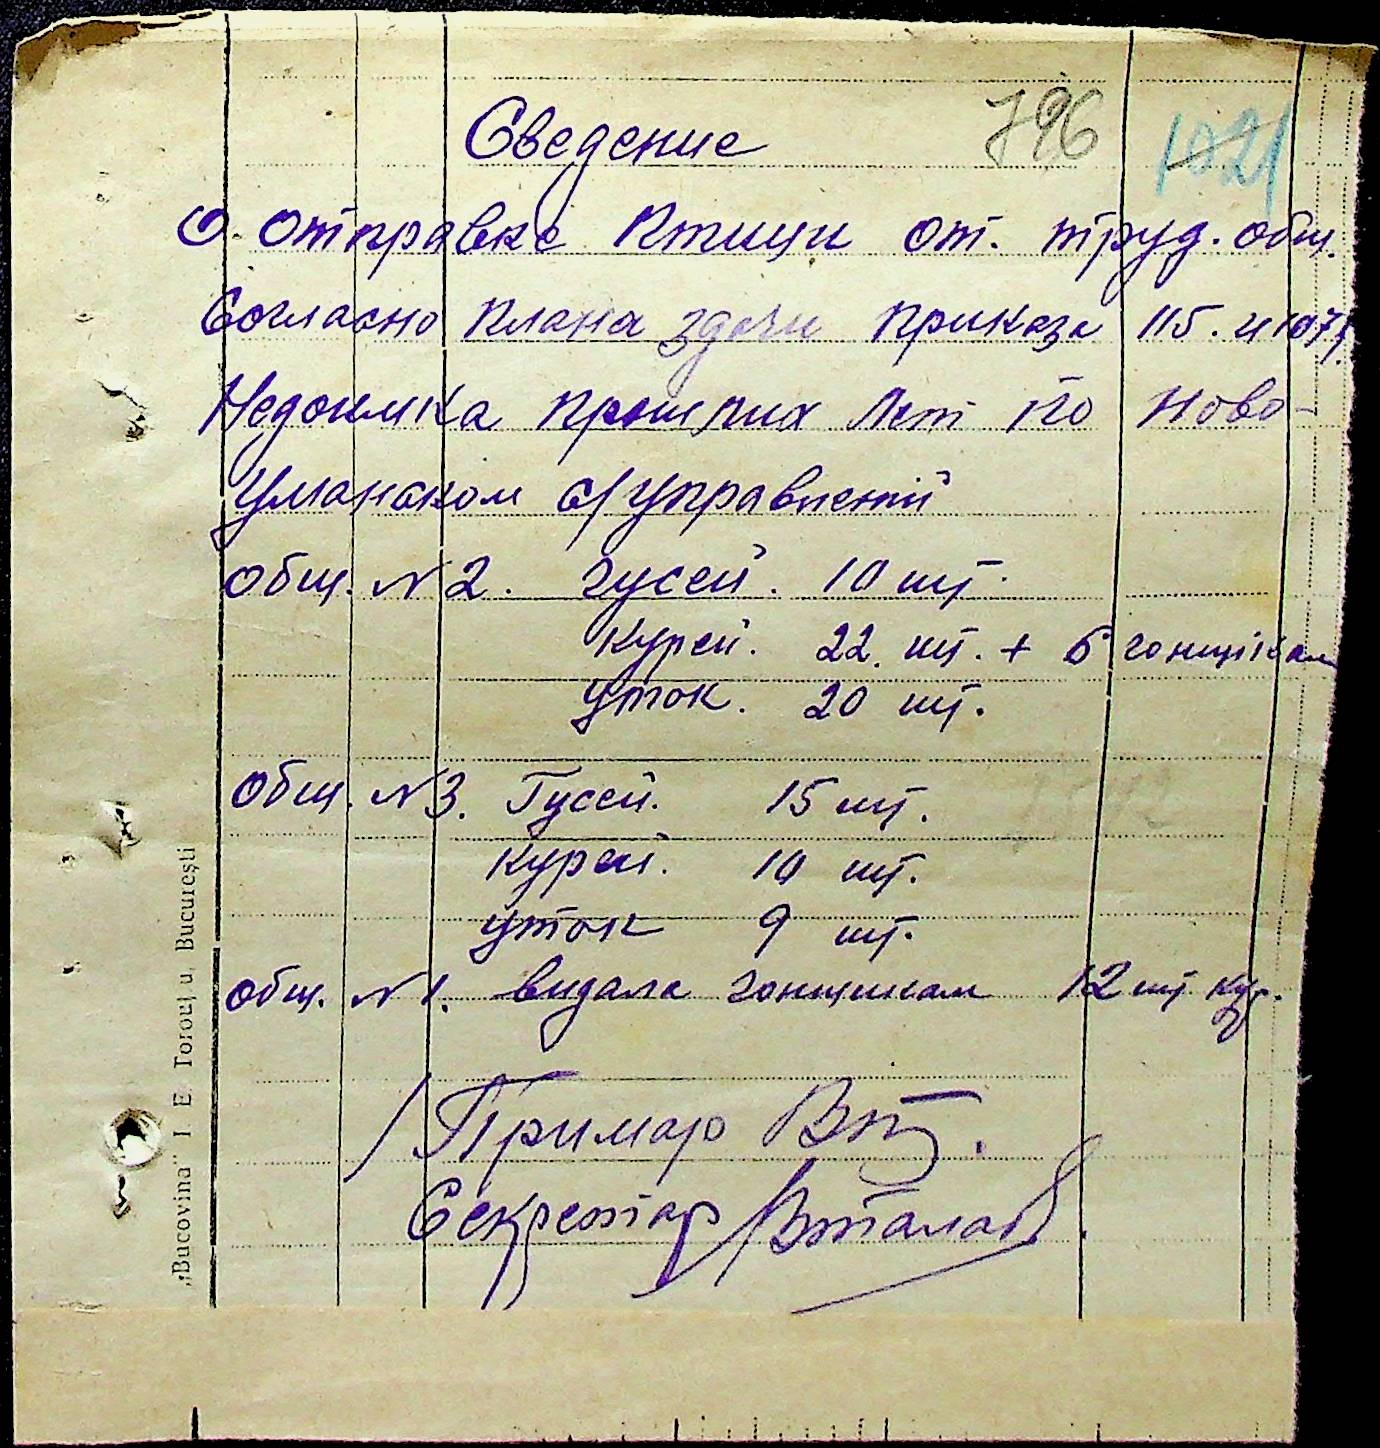 796 1021
Сведение
О. отправке птици от. труд. общ.
Согласно плана здачи приказа 115. и 1071
Недоимка прошлих лет по Ново-
Уманском с/управлений
Общ. N 2. гусей. 10 шт.
курей. 22. шт. + 6 гонщікам
уток. 20 шт.
Общ. N 3. Гусей. 15 шт.
курей. 10 шт.
уток 9 шт.
общ. N 1. видала гонщикам 12 шт. кур.
Примар
Секретар
„Bucovina" I E Torouțu, București